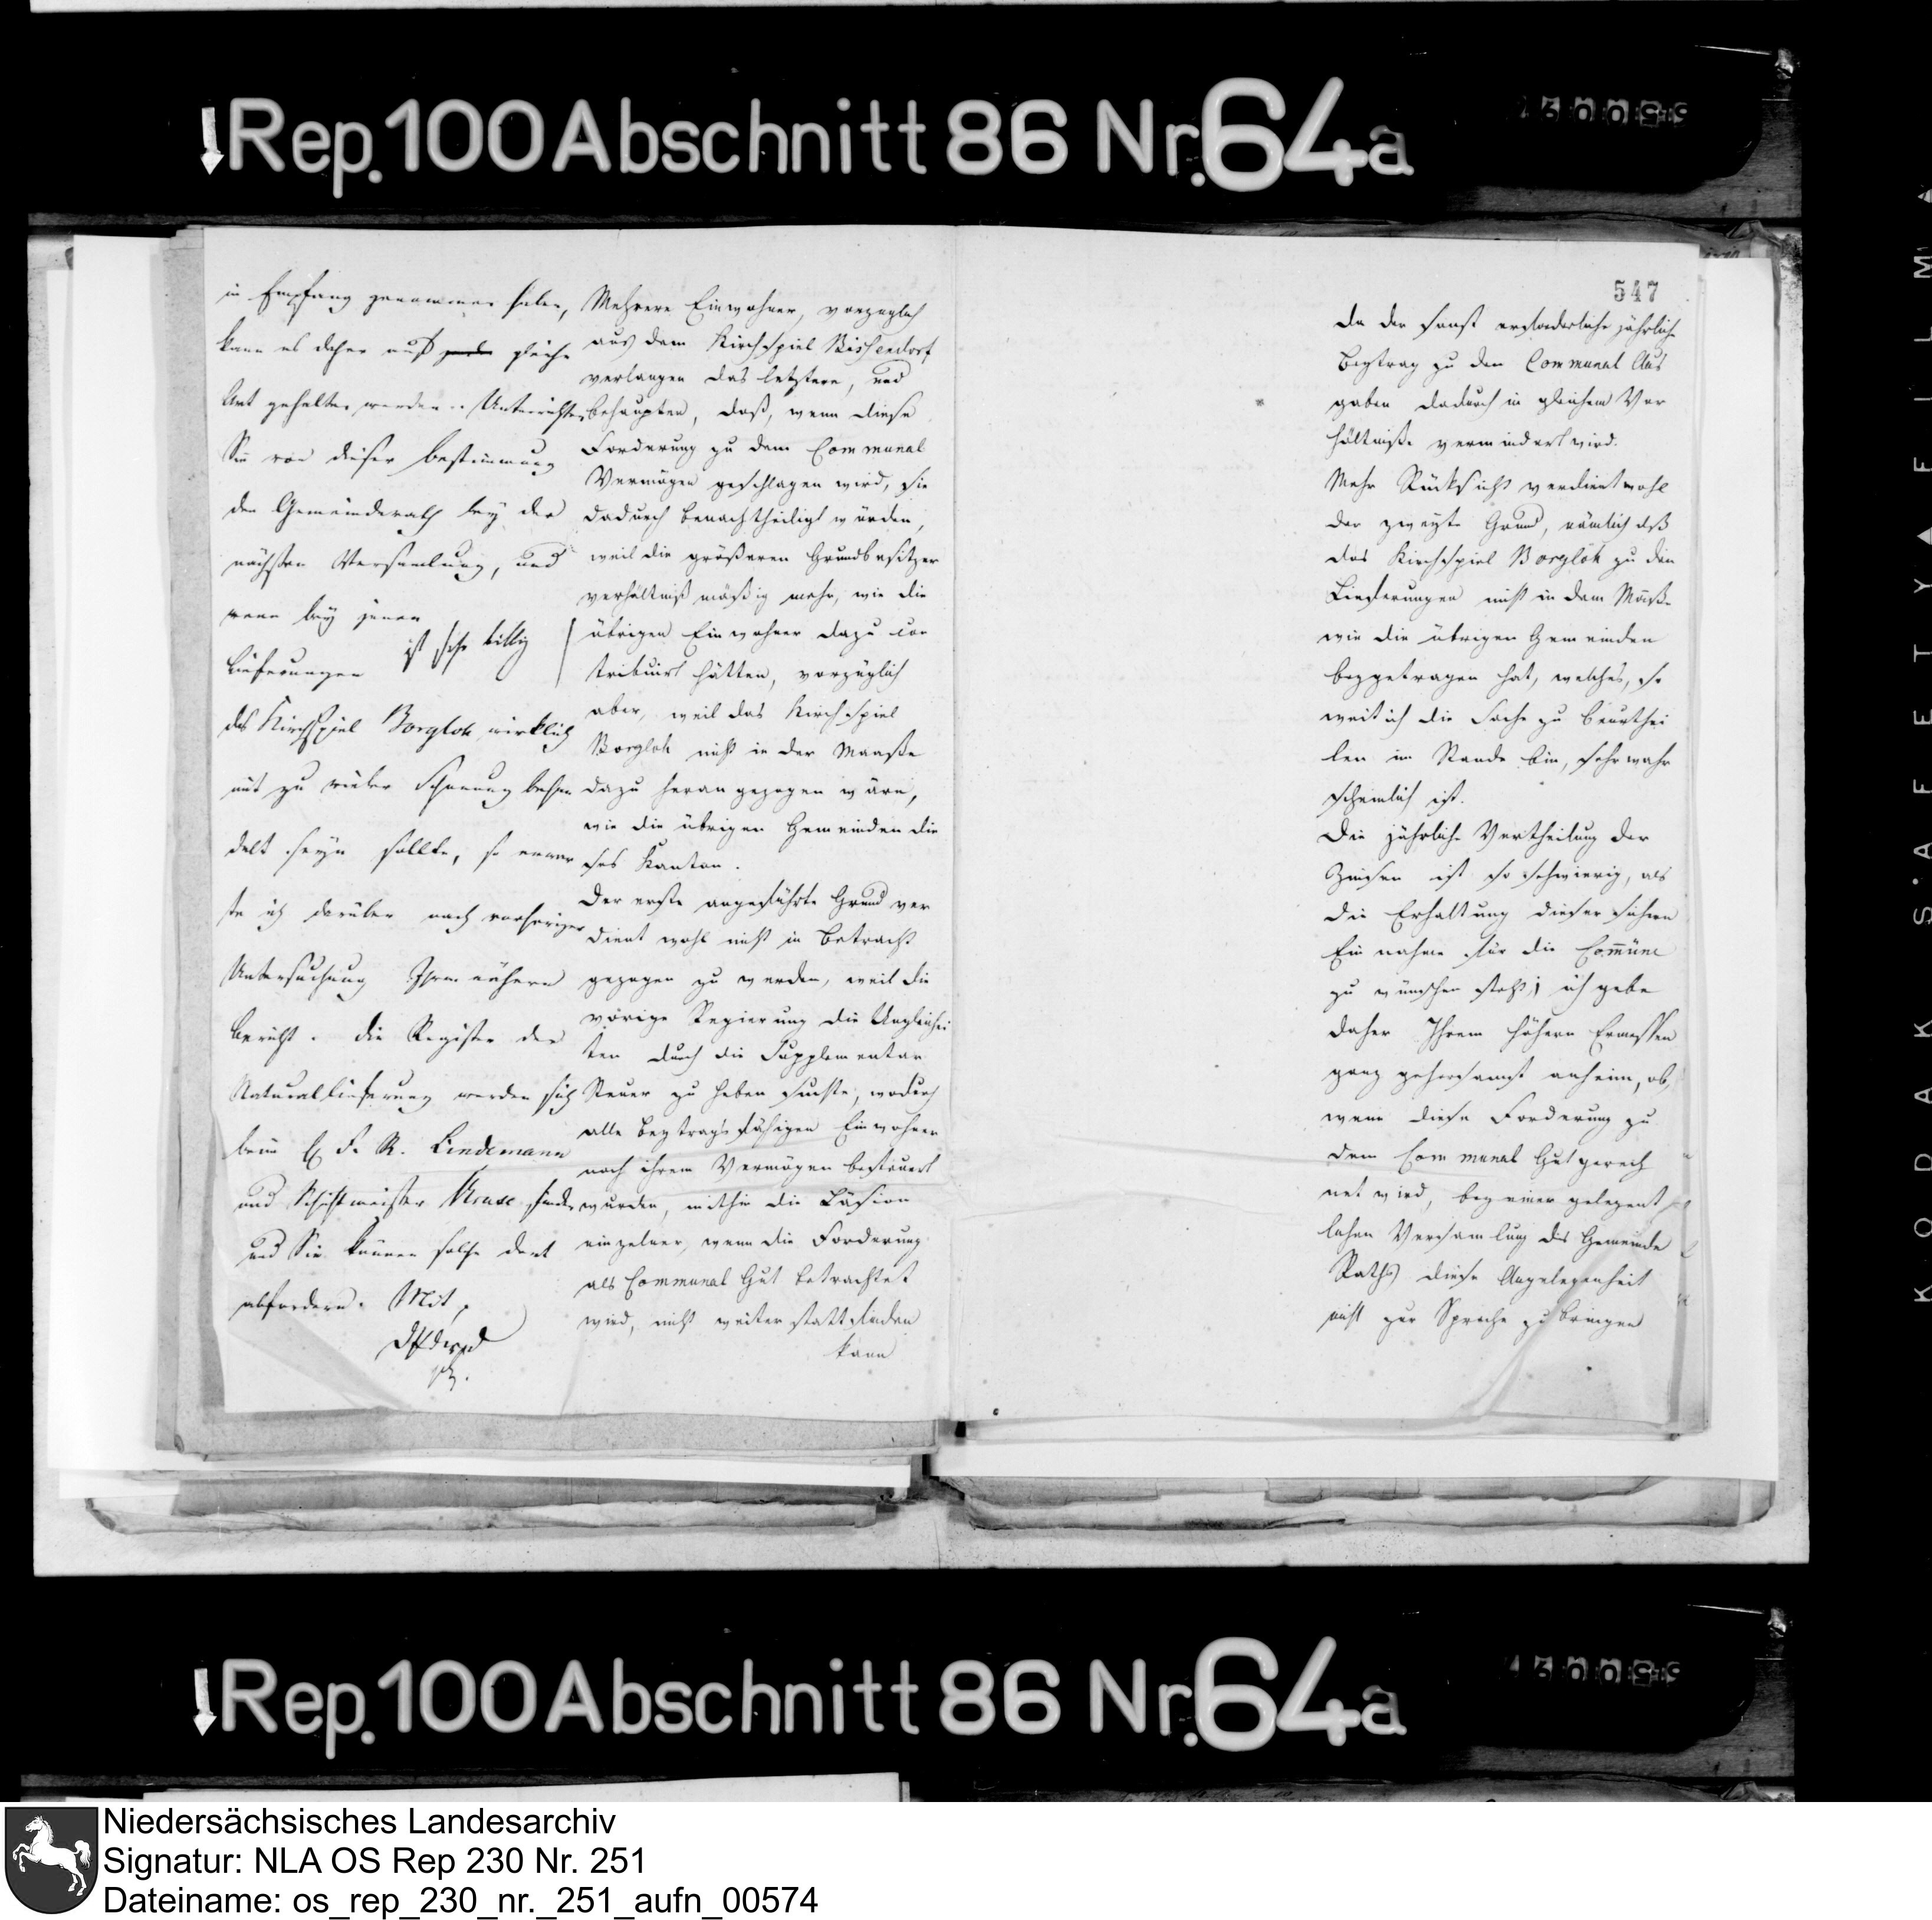 Rep. 100 Abschnitt 86 Nr. 64a
in Empfang genommen haben,
kann es daher auf gleiche
Art gehalten werden. Unterrichten
Sie von dieser Bestimmung
den Gemeinderath bey der
nächsten Versamlung, und
wenn bey jenen
Lieferungen ist sehr billig
das Kirchspiel Borgloh wirklich
mit zu vieler Schonung behan
delt seyn sollte, so erwar
te ich darüber nach vorheriger
Untersuchung Ihren nähern
Bericht. Die Register der
Naturallieferung werden sich
beim Lindemann
und Schichtmeister Kruse finden
und Sie können solche dort
abfordern. Mit
Mehrere Einwohner, vorzüglich
aus dem Kirchspiel Bissendorf
verlangen das letztere, und
behaupten, daß, wenn diese
Forderung zu dem Communal
Vermögen geschlagen wird, sie
dadurch benachtheiligt würden,
weil die größeren Grundbesitzer
verhältnißmäßig mehr, wie die
übrigen Einwohner dazu con
tribuirt hätten, vorzüglich
aber, weil das Kirchspiel
Borgloh nicht in der Maaße
dazu heran gezogen wäre,
wie die übrigen Gemeinden die
ses Kanton.
Der erste angeführte Grund ver
dient wohl nicht in Betracht
gezogen zu werden, weil die
vorige Regierung die Ungleichhei
ten durch die Supplementar
Steuer zu heben suchte, wodurch
alle beytragsfähigen Einwohner
nach ihrem Vermögen besteuert
wurden, mithin die Läsion
einzelner, wenn die Forderung
als Communal Gut betrachtet
wird, nicht weiter statt finden
kann
547
da der sonst erforderliche jährliche
Beytrag zu den Communal Aus
gaben dadurch in gleichem Ver
hältniße vermindert wird.
Mehr Rücksicht verdient wohl
der zweyte Grund, nämlich daß
das Kirchspiel Borgloh zu den
Lieferungen nicht in dem Maaße
wie die übrigen Gemeinden
beygetragen hat, welches, so
weit ich die Sache zu beurthei
len im Stande bin, sehr wahr
scheinlich ist.
Die jährliche Vertheilung der
Zinsen ist so schwierig, als
die Erhaltung dieser sichern
Einnahme für die Com̄üne
zu wünschen steht; ich gebe
daher Ihrem höhern Ermessen
ganz gehorsamst anheim, ob,
wenn diese Forderung zu
dem Communal Gut gerech
net wird, bey einer gelegent
lichen Versamlung des Gemeinde
Raths diese Angelegenheit
nicht zur Sprache zu bringen
Rep. 100 Abschnitt 86 Nr. 64a
KODAK SAFETY FILM
Niedersächsisches Landesarchiv
Signatur: NLA OS Rep 230 Nr. 251
Dateiname: os_rep_230_nr._251_aufn_00574